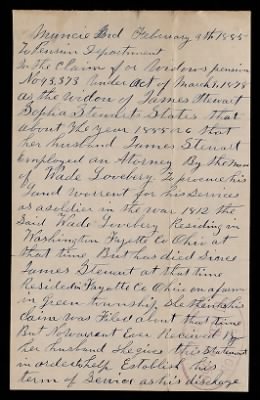 Muncie Ind February 9th 1885
To Pension Department
In the Claim for Widows pension
No 43,373 Under Act of March 9, 1878
as the widow of James Stewart
Sophia Stewart States that
about The year 1855 or 6 that
her husband James Stewart
Employed an Attorney By the Name
of Wade Lovebery To procure his
Land warrent for his Service
as a soldier in the war 1812 the
Said Wade Lovebery Residing in
Washington Fayette Co Ohio at
that time But has died Since
James Stewart at that time
Resided in Fayette Co Ohio on a farm
in green township She thinks his
claim was Filed about that time
But No warrant Ever Received By
her husband She gives this Statement
in order to help Establish his
term of Service as his discharge